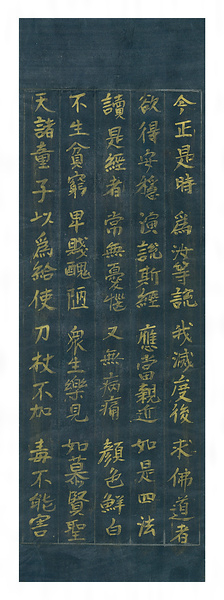 今正是時 為汝等說 我滅度後 求佛道者
欲得安隱 演說斯經 應當親近 如是四法
讀是經者 常無憂惱 又無病痛 顏色鮮白
不生貧窮 卑賤醜陋 衆生樂見 如慕賢聖
天諸童子 以為給使 刀杖不加 毒不能害